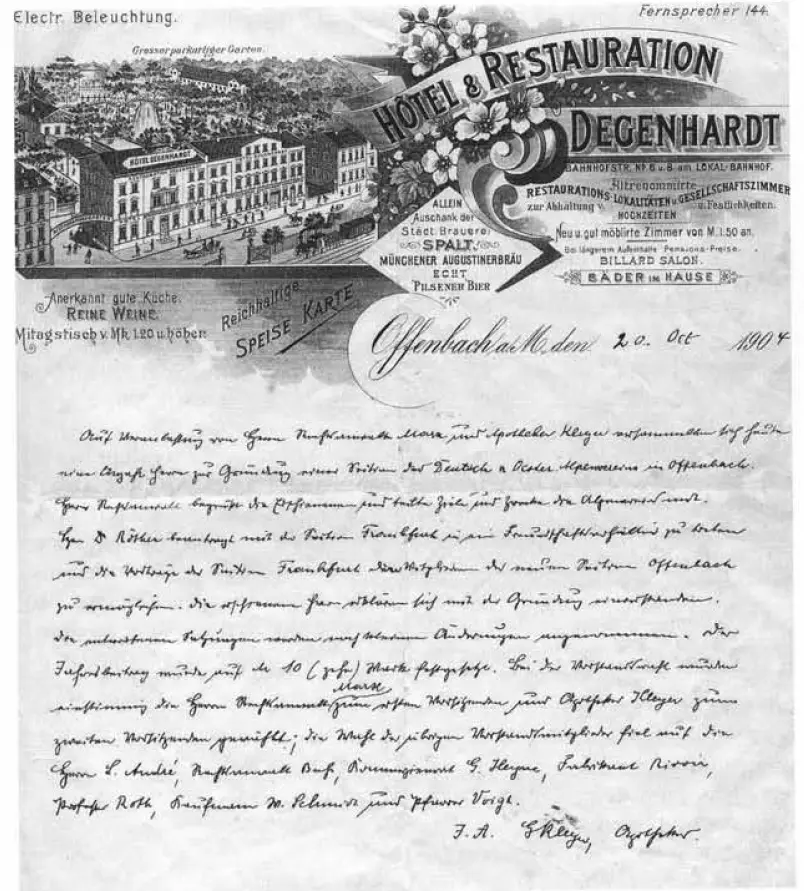 Electr. Beleuchtung.
Fernsprecher 144.
Grosser parkartiger Garten.
HÔTEL DEGENHARDT
HÔTEL & RESTAURATION
DEGENHARDT
BAHNHOFSTR. No 6 u. 8 am LOKAL-BAHNHOF.
Altrenommirte
RESTAURATIONS-LOKALITÄTEN u. GESELLSCHAFTSZIMMER
zur Abhaltung v. HOCHZEITEN u. Festlichkeiten.
Neu u. gut möblirte Zimmer von M. 1.50 an.
Bei längerem Aufenthalte Pensions-Preise.
BILLARD SALON.
BÄDER IM HAUSE
ALLEIN
Auschank der
Städt. Brauerei
SPALT.
MÜNCHENER AUGUSTINERBRÄU
ECHT
PILSENER BIER
Anerkannt gute Küche.
REINE WEINE.
Mitagstisch v. Mk. 1.20 u. höher.
Reichhaltige
SPEISE KARTE
Offenbach a. M. den 20. Oct 1904
Auf Veranlassung von Herrn Rechtsanwalt Marx und Apotheker Kleyer versammelten sich heute
eine Anzahl Herrn zur Gründung einer Section des Deutsch u Oester Alpenvereins in Offenbach.
Herr Rechtsanwalt begrüßt die Erschienenen und teilte Ziele und Zwecke des Alpenvereins mit.
Herr Dr Röther beantragt mit der Section Frankfurt in ein Freundschaftsverhältnis zu treten
und die Vorträge der Section Frankfurt den Mitgliedern der neuen Section Offenbach
zu ermöglichen. Die erschienenen Herrn erklären sich mit der Gründung einverstanden.
Die entworfenen Satzungen wurden nach kleinen Änderungen angenommen. Der
Jahresbeitrag wurde auf M 10 (zehn) Mark festgesetzt. Bei der Vorstandswahl wurden
einstimmig die Herrn Rechtsanwalt Marx zum ersten Vorsitzenden und Apotheker Kleyer zum
zweiten Vorsitzenden gewählt; die Wahl der übrigen Vorstandsmitglieder fiel auf die
Herrn L. André, Rechtsanwalt Kommerzienrat G. Fabrikant
Professor Roth, Kaufmann W. Schmidt und Pfarrer Voigt.
I. A. GKleyer, Apotheker.